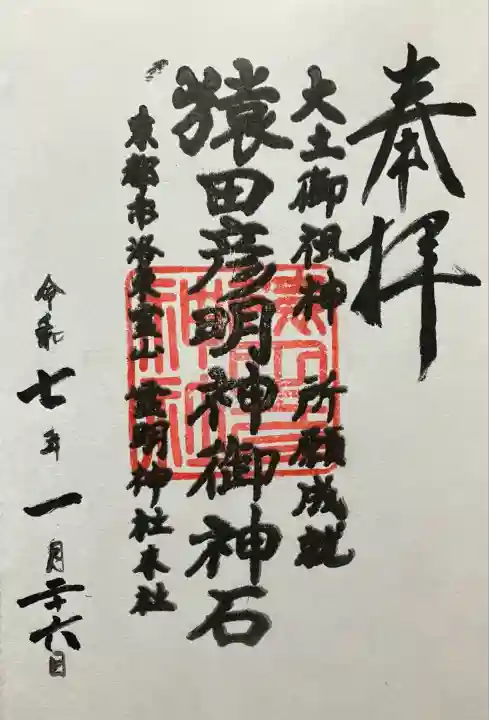 奉拝
大土御祖神 所願成就
猿田彦明神御神石
京都市洛東霊山 霊明神社末社
令和七年一月二十六日